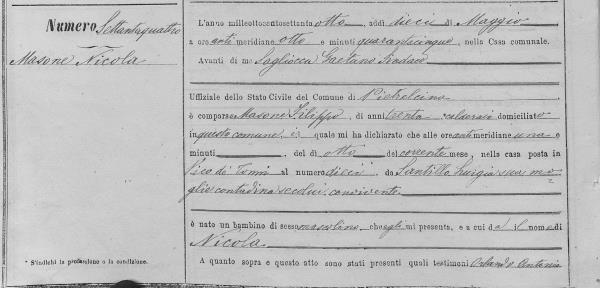 Numero Settantaquattro
Masone Nicola
* S'indichi la professione o la condizione.
L'anno millottocentosettantotto, addì dieci di Maggio
a ore anti meridiane otto e minuti quarantacinque, nella Casa comunale.
Avanti di me Sagliocca Gaetano Sindaco
Uffiziale dello Stato Civile del Comune di Pietrelcina
è comparso Masone Filippo, di anni trenta domiciliato
in questo comune, il quale mi ha dichiarato che alle ore anti meridiane una e
minuti , del dì otto del corrente mese, nella casa posta in
Vico di al numero dieci, da Santillo sua mo-
glie contadina secolui convivente
è nato un bambino di sesso mascolino che egli mi presenta, e a cui dà il nome di
Nicola
A quanto sopra e questo atto sono stati presenti quali testimoni Orlando Antonio